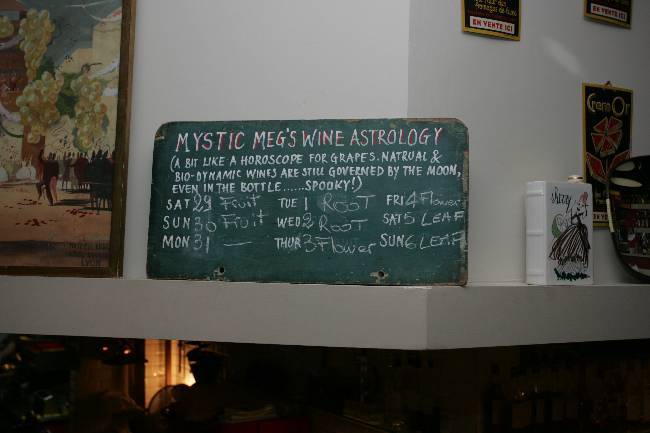 MYSTIC MEG'S WINE ASTROLOGY
(A BIT LIKE A HOROSCOPE FOR GRAPES. NATRUAL &
BIO-DYNAMIC WINES ARE STILL GOVERNED BY THE MOON,
EVEN IN THE BOTTLE......SPOOKY!)
SAT 29 Fruit TUE 1 ROOT FRI 4 Flower
SUN 30 Fruit WED 2 ROOT SAT 5 LEAF
MON 31 — THUR 3 Flower SUN 6 LEAF
EN VENTE ICI
EN VENTE ICI